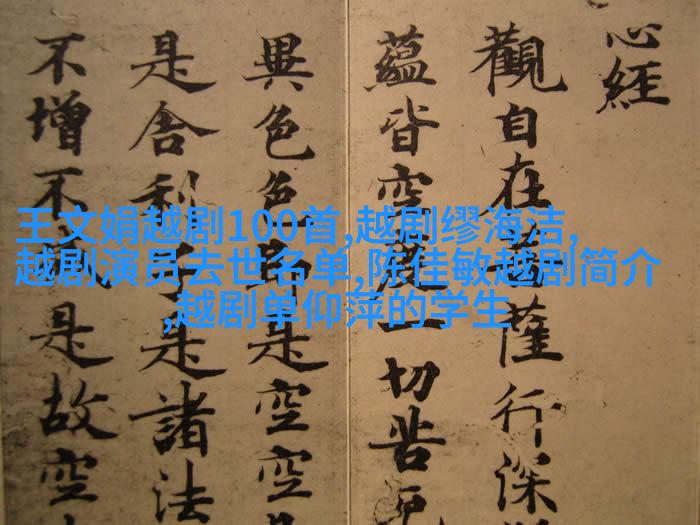 王文娟越剧100首,越剧缪海洁,
越剧演员去世名单,陈佳敏越剧简介
,越剧单仰萍的学生
心經
觀自在菩薩行深
蘊皆空度一切苦厄
異色色即是空空
是舍利子是諸法
不增不減是故空